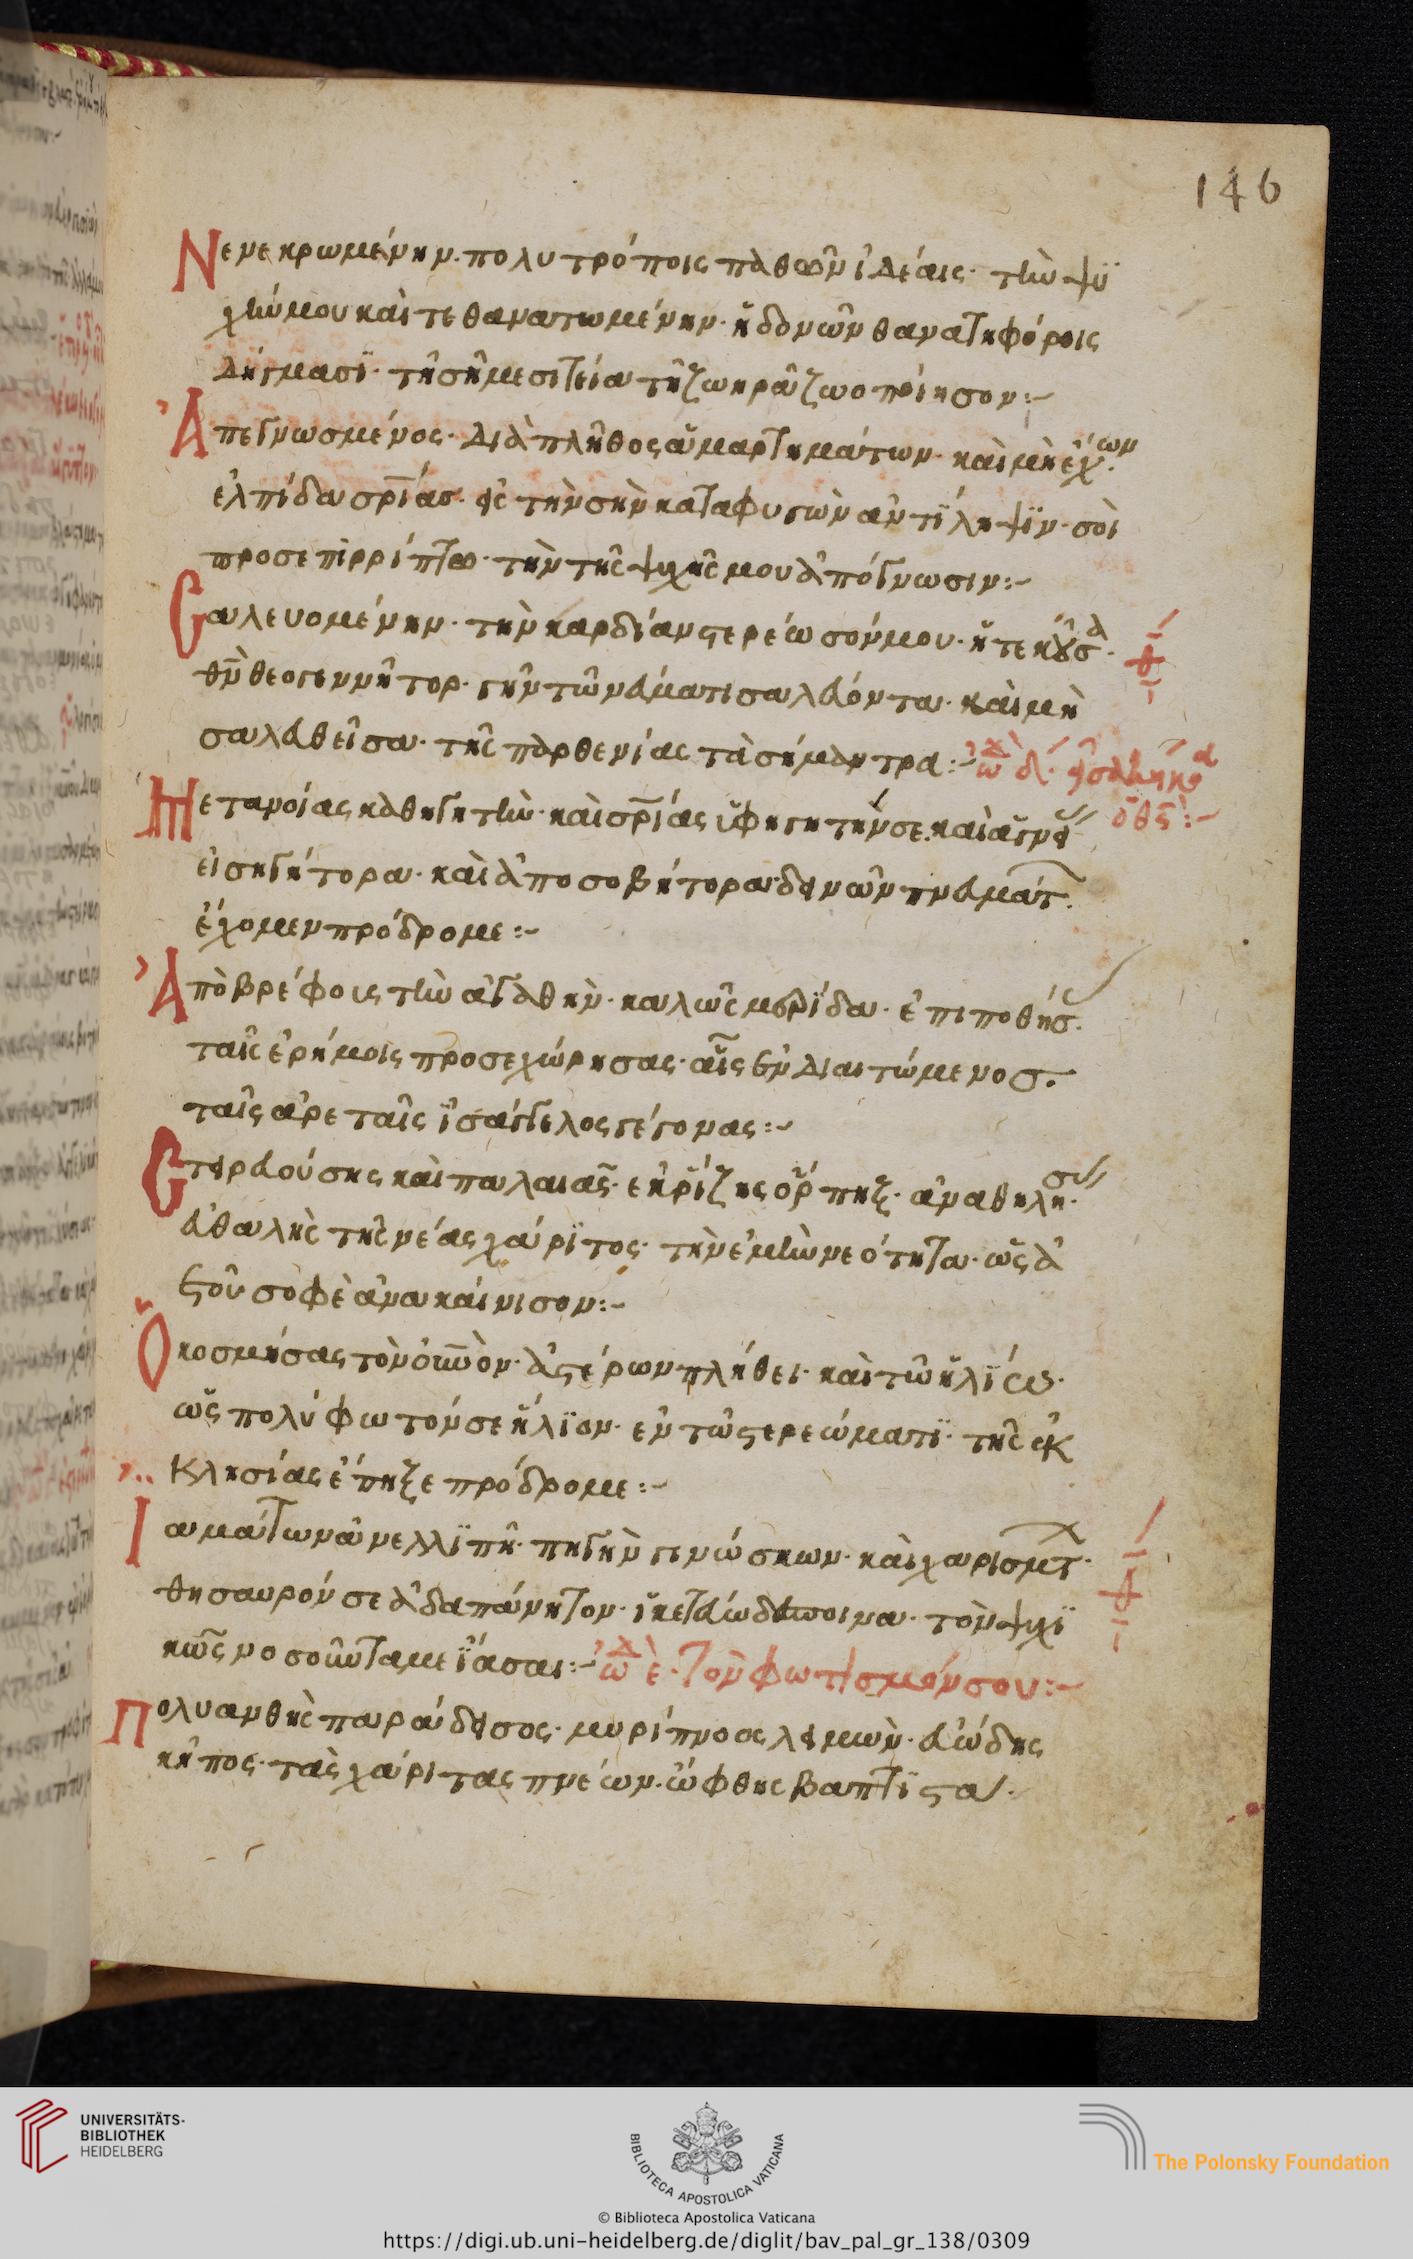 146
Νενεκρωμένην· πολυτρόποις παθῶν ἰδέαις· τὴν ψυ
χήν μου καὶ τεθανατωμένην· ἡδονῶν θανατηφόροις
δήγμασι· τῇ σῇ μεσιτεία τῇ ζωηρᾶ ζωοποίησον:~
Ἀπεγνωσμένος· διὰ πλῆθος ἁμαρτημάτων· καὶ μὴ ἔχων
ἐλπίδα σρίας· εἰς τὴν σὴν καταφυγὼν ἀντίληψιν· σοὶ
προσεπιρρίπτω· τὴν τῆς ψυχῆς μου ἀπόγνωσιν:~
Σαλευομένην· τὴν καρδίαν στερέωσόν μου· ἡ τεκοῦσα
θν θεογεννῆτορ· γῆν τῶ νεύματι σαλεύοντα· καὶ μὴ
σαλευθεῖσα· τῆς παρθενίας τὰ σήμαντρα:~ ὠδ δ·
ὁ θς:~
Μετανοίας καθηγητὴν· καὶ σρίας ὑφηγητήν σε· καὶ ἁγνεί
εἰσηγήτορα· καὶ ἀποσοβήτορα δεινῶν πνευμάτ·
ἔχομεν πρόδρομε:~
Ἀπὸ βρέφους τὴν ἀγαθὴν· καλῶς μερίδα· ἐπιποθήσ·
ταῖς ἐρήμοις προσεχώρησας· αἷς ἐνδιαιτώμενος·
ταῖς ἀρεταῖς ἰσάγγελος γέγονας:~
Στειρευούσης καὶ παλαιᾶς· ἐκ ρίζης ὄρπηξ· ἀναθηλησ·
ἀθαλὴς τῆς νέας χάριτος· τὴν ἐμὴν νεότητα· ὡς ἀ
ετοῦ σοφὲ ἀνακαίνισον:~
Ὁ κοσμήσας τὸν οὐνὸν· ἀστέρων πλήθει· καὶ τῶ ἡλίω·
ὡς πολύφωτόν σε ἥλιον· ἐν τῶ στερεώματι· τῆς ἐκ
κλησίας ἔπηξε πρόδρομε:~
Ἰαμάτων ἀνελλιπῆ· πηγὴν γινώσκων· καὶ χαρισμτ·
θησαυρόν σε ἀδαπάνητον· ἱκετεύω δέσποινα· τὸν ψυχι
κῶς νοσοῦντα με ἴασαι:~ ὠδ ε· Τὸν φωτισμόν σου:~
Πολυανθὴς παράδεισος· μυρίπνοος λειμὼν· εὐώδης
κῆπος· τὰς χάριτας πνέων· ὤφθης βαπτιστα·
UNIVERSITÄTS-
BIBLIOTHEK
HEIDELBERG
BIBLIOTECA APOSTOLICA VATICANA
The Polonsky Foundation
© Biblioteca Apostolica Vaticana
https://digi.ub.uni-heidelberg.de/diglit/bav_pal_gr_138/0309